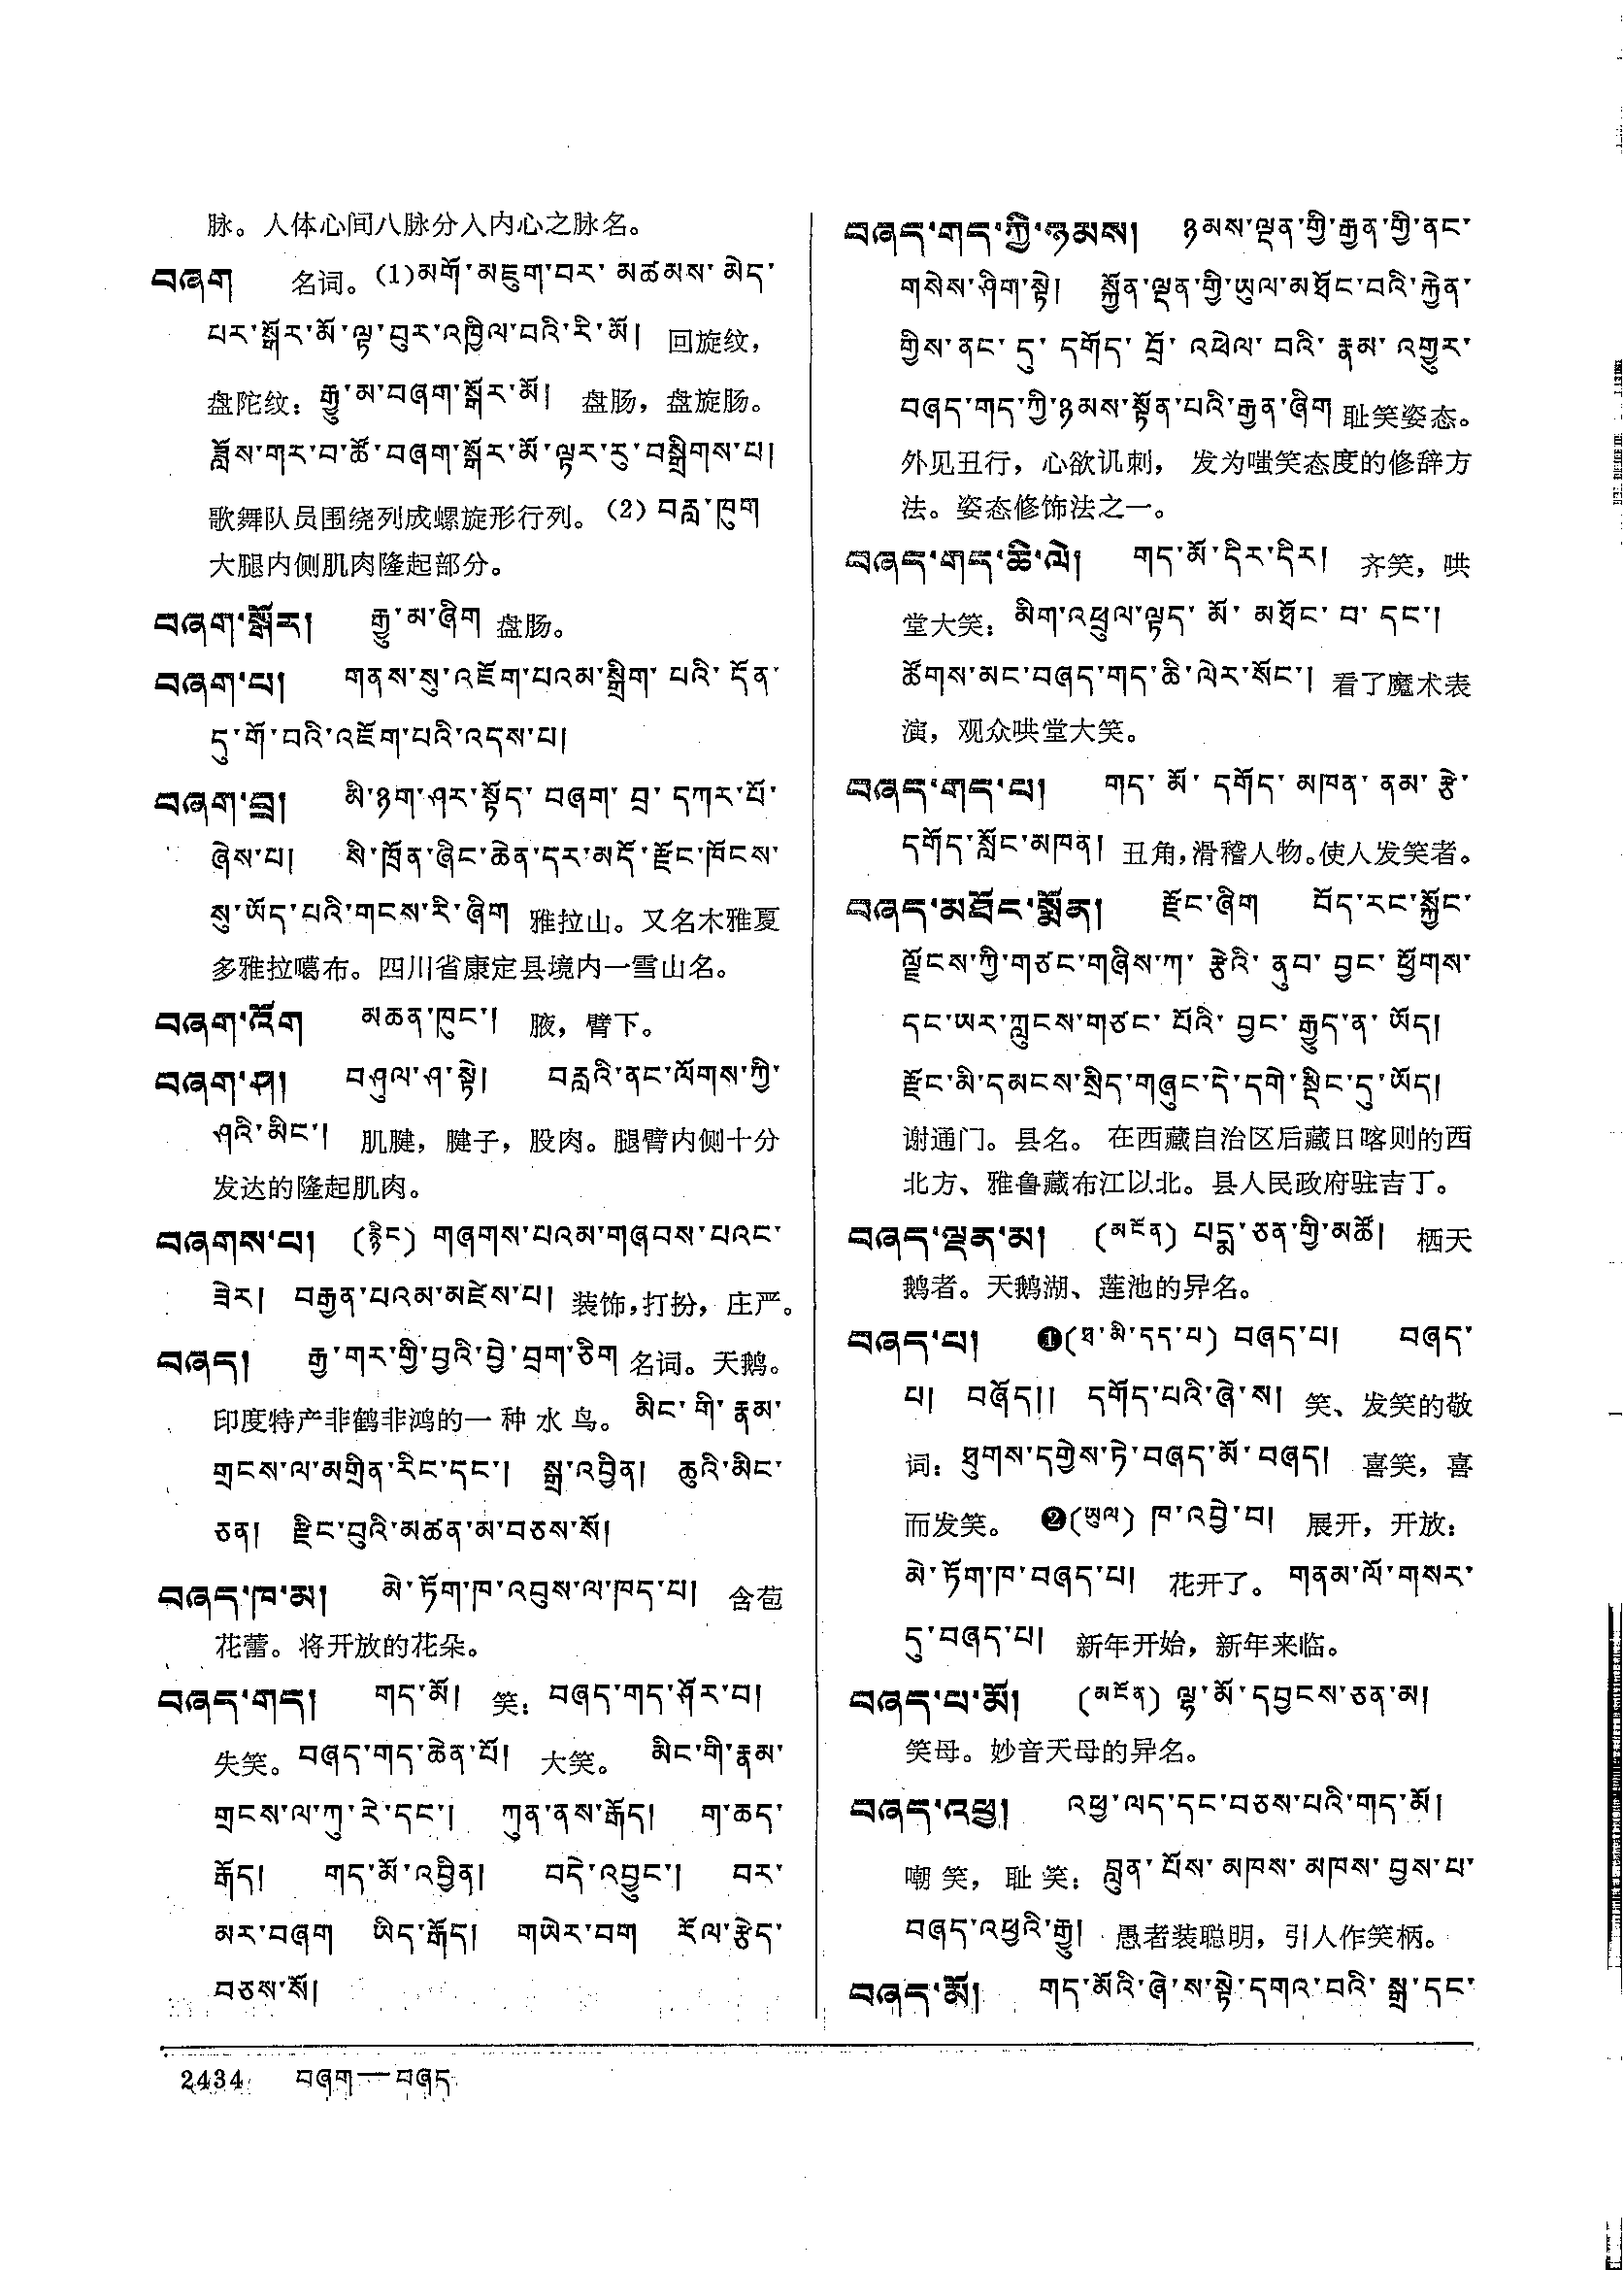 脉。人体心间八脉分入内心之脉名。
བཞག 名词。(1)མགོ་མཇུག་བར་མཚམས་མེད་
པར་སྒོར་མོ་ལྟ་བུར་འཁྱིལ་བའི་རི་མོ། 回旋纹，
盘陀纹：རྒྱུ་མ་བཞག་སྒོར་མོ། 盘肠，盘旋肠。
ཟློས་གར་བ་ཚོ་བཞག་སྒོར་མོ་ལྟར་དུ་བསྒྲིགས་པ།
歌舞队员围绕列成螺旋形行列。(2) བརླ་ཁུག
大腿内侧肌肉隆起部分。
བཞག་སྒོར། རྒྱུ་མ་ཞིག 盘肠。
བཞག་པ། གནས་སུ་འཇོག་པའམ་སྒྲིག་པའི་དོན་
དུ་གོ་བའི་འཇོག་པའི་འདས་པ།
བཞག་བྲ། མི་ཉག་ཤར་སྟོད་བཞག་བྲ་དཀར་པོ་
ཞེས་པ། སི་ཁྲོན་ཞིང་ཆེན་དར་མདོ་རྫོང་ཁོངས་
སུ་ཡོད་པའི་གངས་རི་ཞིག 雅拉山。又名木雅夏
多雅拉噶布。四川省康定县境内一雪山名。
བཞག་འོག མཆན་ཁུང་། 腋，臂下。
བཞག་ཤ། བཤུལ་ཤ་སྟེ། བརླའི་ནང་ལོགས་ཀྱི་
ཤའི་མིང་། 肌腱，腱子，股肉。腿臂内侧十分
发达的隆起肌肉。
བཞགས་པ། (རྙིང) གཞགས་པའམ་གཞབས་པའང་
ཟེར། བརྒྱན་པའམ་མཛེས་པ། 装饰，打扮，庄严。
བཞད། རྒྱ་གར་གྱི་བྱའི་བྱེ་བྲག་ཅིག 名词。天鹅。
印度特产非鹤非鸿的一种水鸟。མིང་གི་རྣམ་
གྲངས་ལ་མགྲིན་རིང་དང་། སྒྲ་འབྱིན། ཆུའི་མིང་
ཅན། རྫིང་བུའི་མཚན་མ་བཅས་སོ།
བཞད་ཁ་མ། མེ་ཏོག་ཁ་འབུས་ལ་ཁད་པ། 含苞
花蕾。将开放的花朵。
བཞད་གད། གད་མོ། 笑：བཞད་གད་ཤོར་བ།
失笑。བཞད་གད་ཆེན་པོ། 大笑。 མིང་གི་རྣམ་
གྲངས་ལ་ཀུ་རེ་དང་། ཀུན་ནས་རྒོད། ག་ཆད་
རྒོད། གད་མོ་འབྱིན། བདེ་འབྱུང་། བར་
མར་བཞག ཡིད་རྒོད། གཡེར་བག རོལ་རྩེད་
བཅས་སོ།
བཞད་གད་ཀྱི་ཉམས། ཉམས་ལྡན་གྱི་རྒྱན་གྱི་ནང་
གསེས་ཤིག་སྟེ། སྐྱོན་ལྡན་གྱི་ཡུལ་མཐོང་བའི་རྐྱེན་
གྱིས་ནང་དུ་དགོད་བྲོ་འཕེལ་བའི་རྣམ་འགྱུར་
བཞད་གད་ཀྱི་ཉམས་སྟོན་པའི་རྒྱན་ཞིག 耻笑姿态。
外见丑行，心欲讥刺，发为嗤笑态度的修辞方
法。姿态修饰法之一。
བཞད་གད་ཆེ་ལེ། གད་མོ་དིར་དིར། 齐笑，哄
堂大笑：མིག་འཕྲུལ་ལྟད་མོ་མཐོང་བ་དང་།
ཚོགས་མང་བཞད་གད་ཆི་ལེར་སོང་། 看了魔术表
演，观众哄堂大笑。
བཞད་གད་པ། གད་མོ་དགོད་མཁན་ནམ་རྩེ་
དགོད་སློང་མཁན། 丑角，滑稽人物。使人发笑者。
བཞད་མཐོང་སྨོན། རྫོང་ཞིག བོད་རང་སྐྱོང་
ལྗོངས་ཀྱི་གཙང་གཞིས་ཀ་རྩེའི་ནུབ་བྱང་ཕྱོགས་
དང་ཡར་ཀླུངས་གཙང་པོའི་བྱང་རྒྱུད་ན་ཡོད།
རྫོང་མི་དམངས་སྲིད་གཞུང་དེ་དགེ་སྡིང་དུ་ཡོད།
谢通门。县名。在西藏自治区后藏日喀则的西
北方、雅鲁藏布江以北。县人民政府驻吉丁。
བཞད་ལྡན་མ། (མངོན) པདྨ་ཅན་གྱི་མཚོ། 栖天
鹅者。天鹅湖、莲池的异名。
བཞད་པ། ❶(ཐ་མི་དད་པ) བཞད་པ། བཞད་
པ། བཞོད།། དགོད་པའི་ཞེ་ས། 笑、发笑的敬
词：ཐུགས་དགྱེས་ཏེ་བཞད་མོ་བཞད། 喜笑，喜
而发笑。 ❷(ཡུལ) ཁ་འབྱེ་བ། 展开，开放：
མེ་ཏོག་ཁ་བཞད་པ། 花开了。གནམ་ལོ་གསར་
དུ་བཞད་པ། 新年开始，新年来临。
བཞད་པ་མོ། (མངོན) ལྷ་མོ་དབྱངས་ཅན་མ།
笑母。妙音天母的异名。
བཞད་འཕྱ། འཕྱ་ལད་དང་བཅས་པའི་གད་མོ།
嘲笑，耻笑：བླུན་པོས་མཁས་མཁས་བྱས་པ་
བཞད་འཕྱའི་རྒྱུ། 愚者装聪明，引人作笑柄。
བཞད་མོ། གད་མོའི་ཞེ་ས་སྟེ་དགའ་བའི་སྒྲ་དང་
2434 བཞག—བཞད